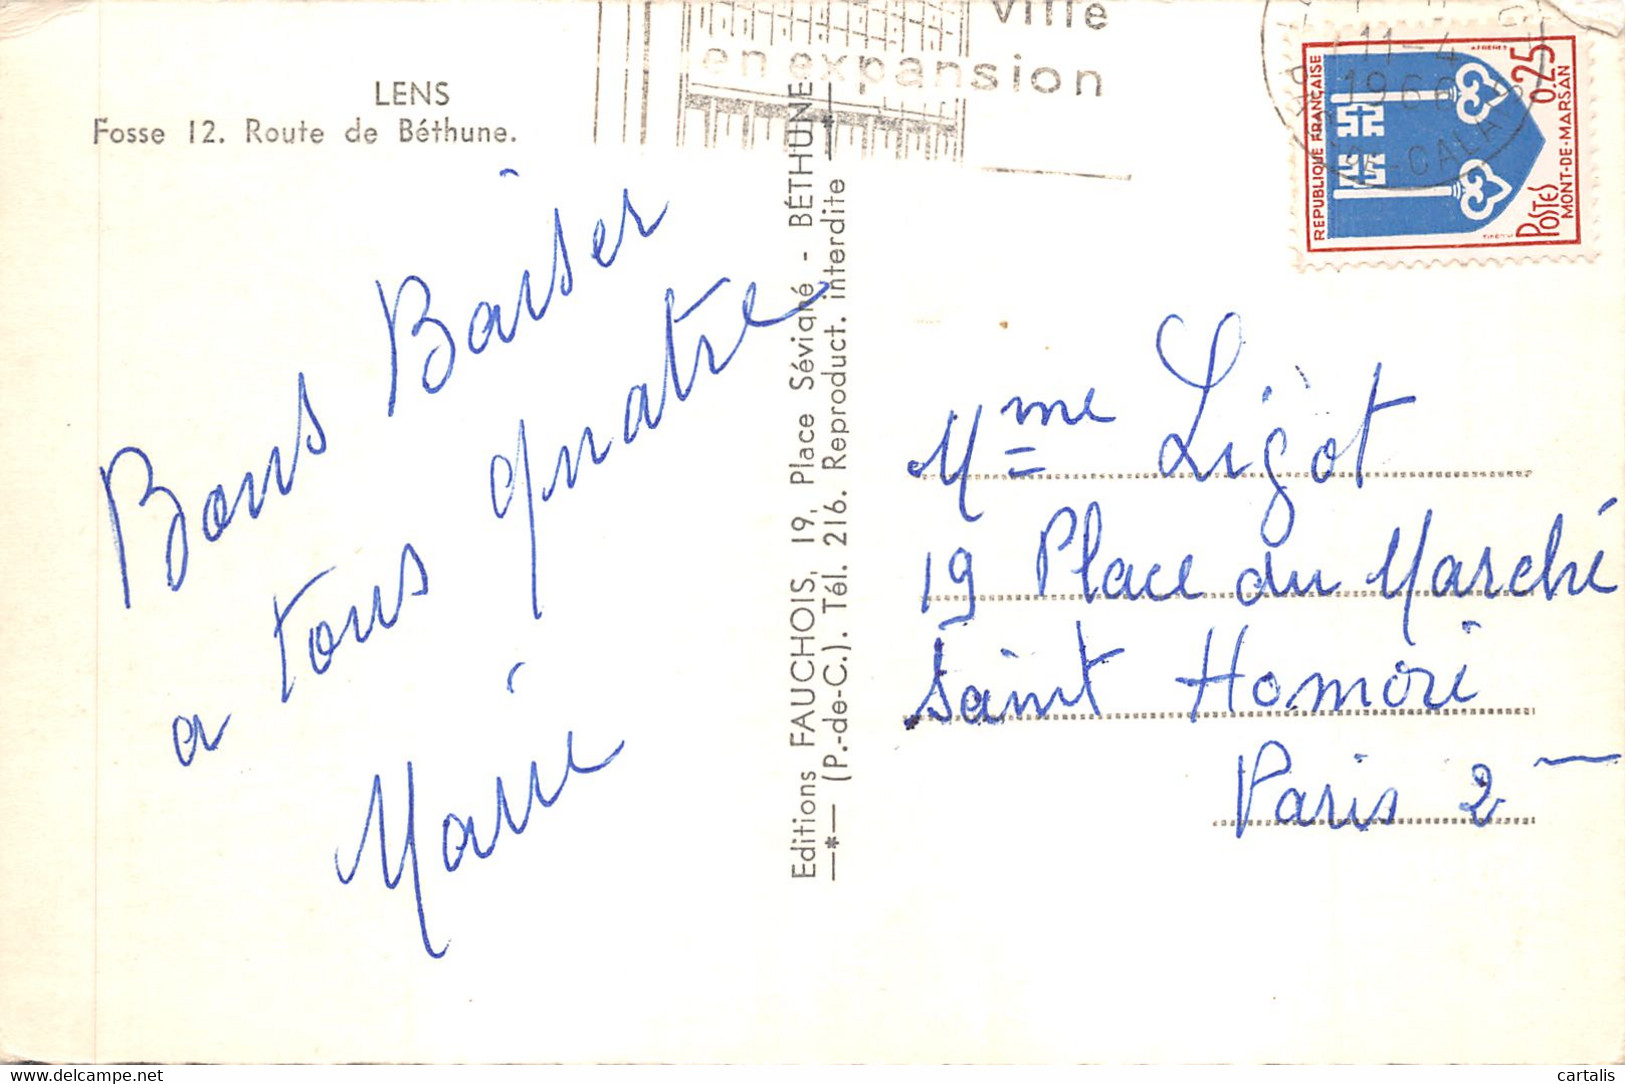 LENS
Fosse 12. Route de Béthune.
Bons Baiser
a tous quatre
Marie
Editions FAUCHOIS, 19, Place Sévigné - BÉTHUNE
(P.-de-C.). Tél. 216. Reproduct. interdite
ville
en expansion
11-4
1966
CALAIS
REPUBLIQUE FRANÇAISE
0,25
POSTES
MONT-DE-MARSAN
Mme Ligot
19 Place du Marché
Saint Homoré
Paris 2
cartalis